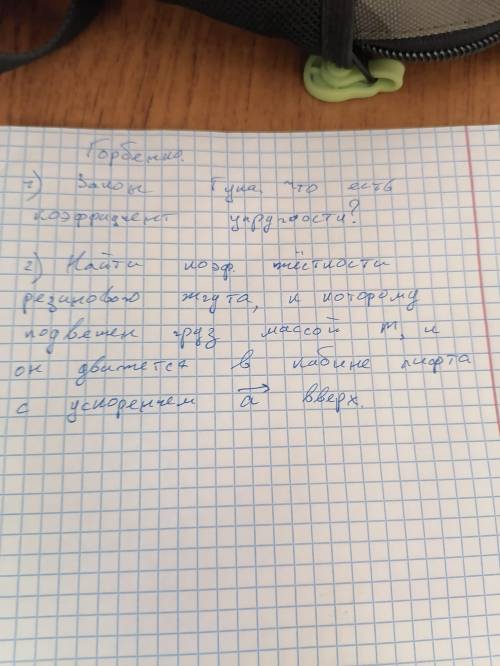 Горбенко.
1) Закон Гука. что есть
коэффициент упругости?
2) Найти коэф. жёсткости
резинового жгута, к которому
подвешен груз массой m, и
он движется в кабине лифта
с ускорением a вверх.